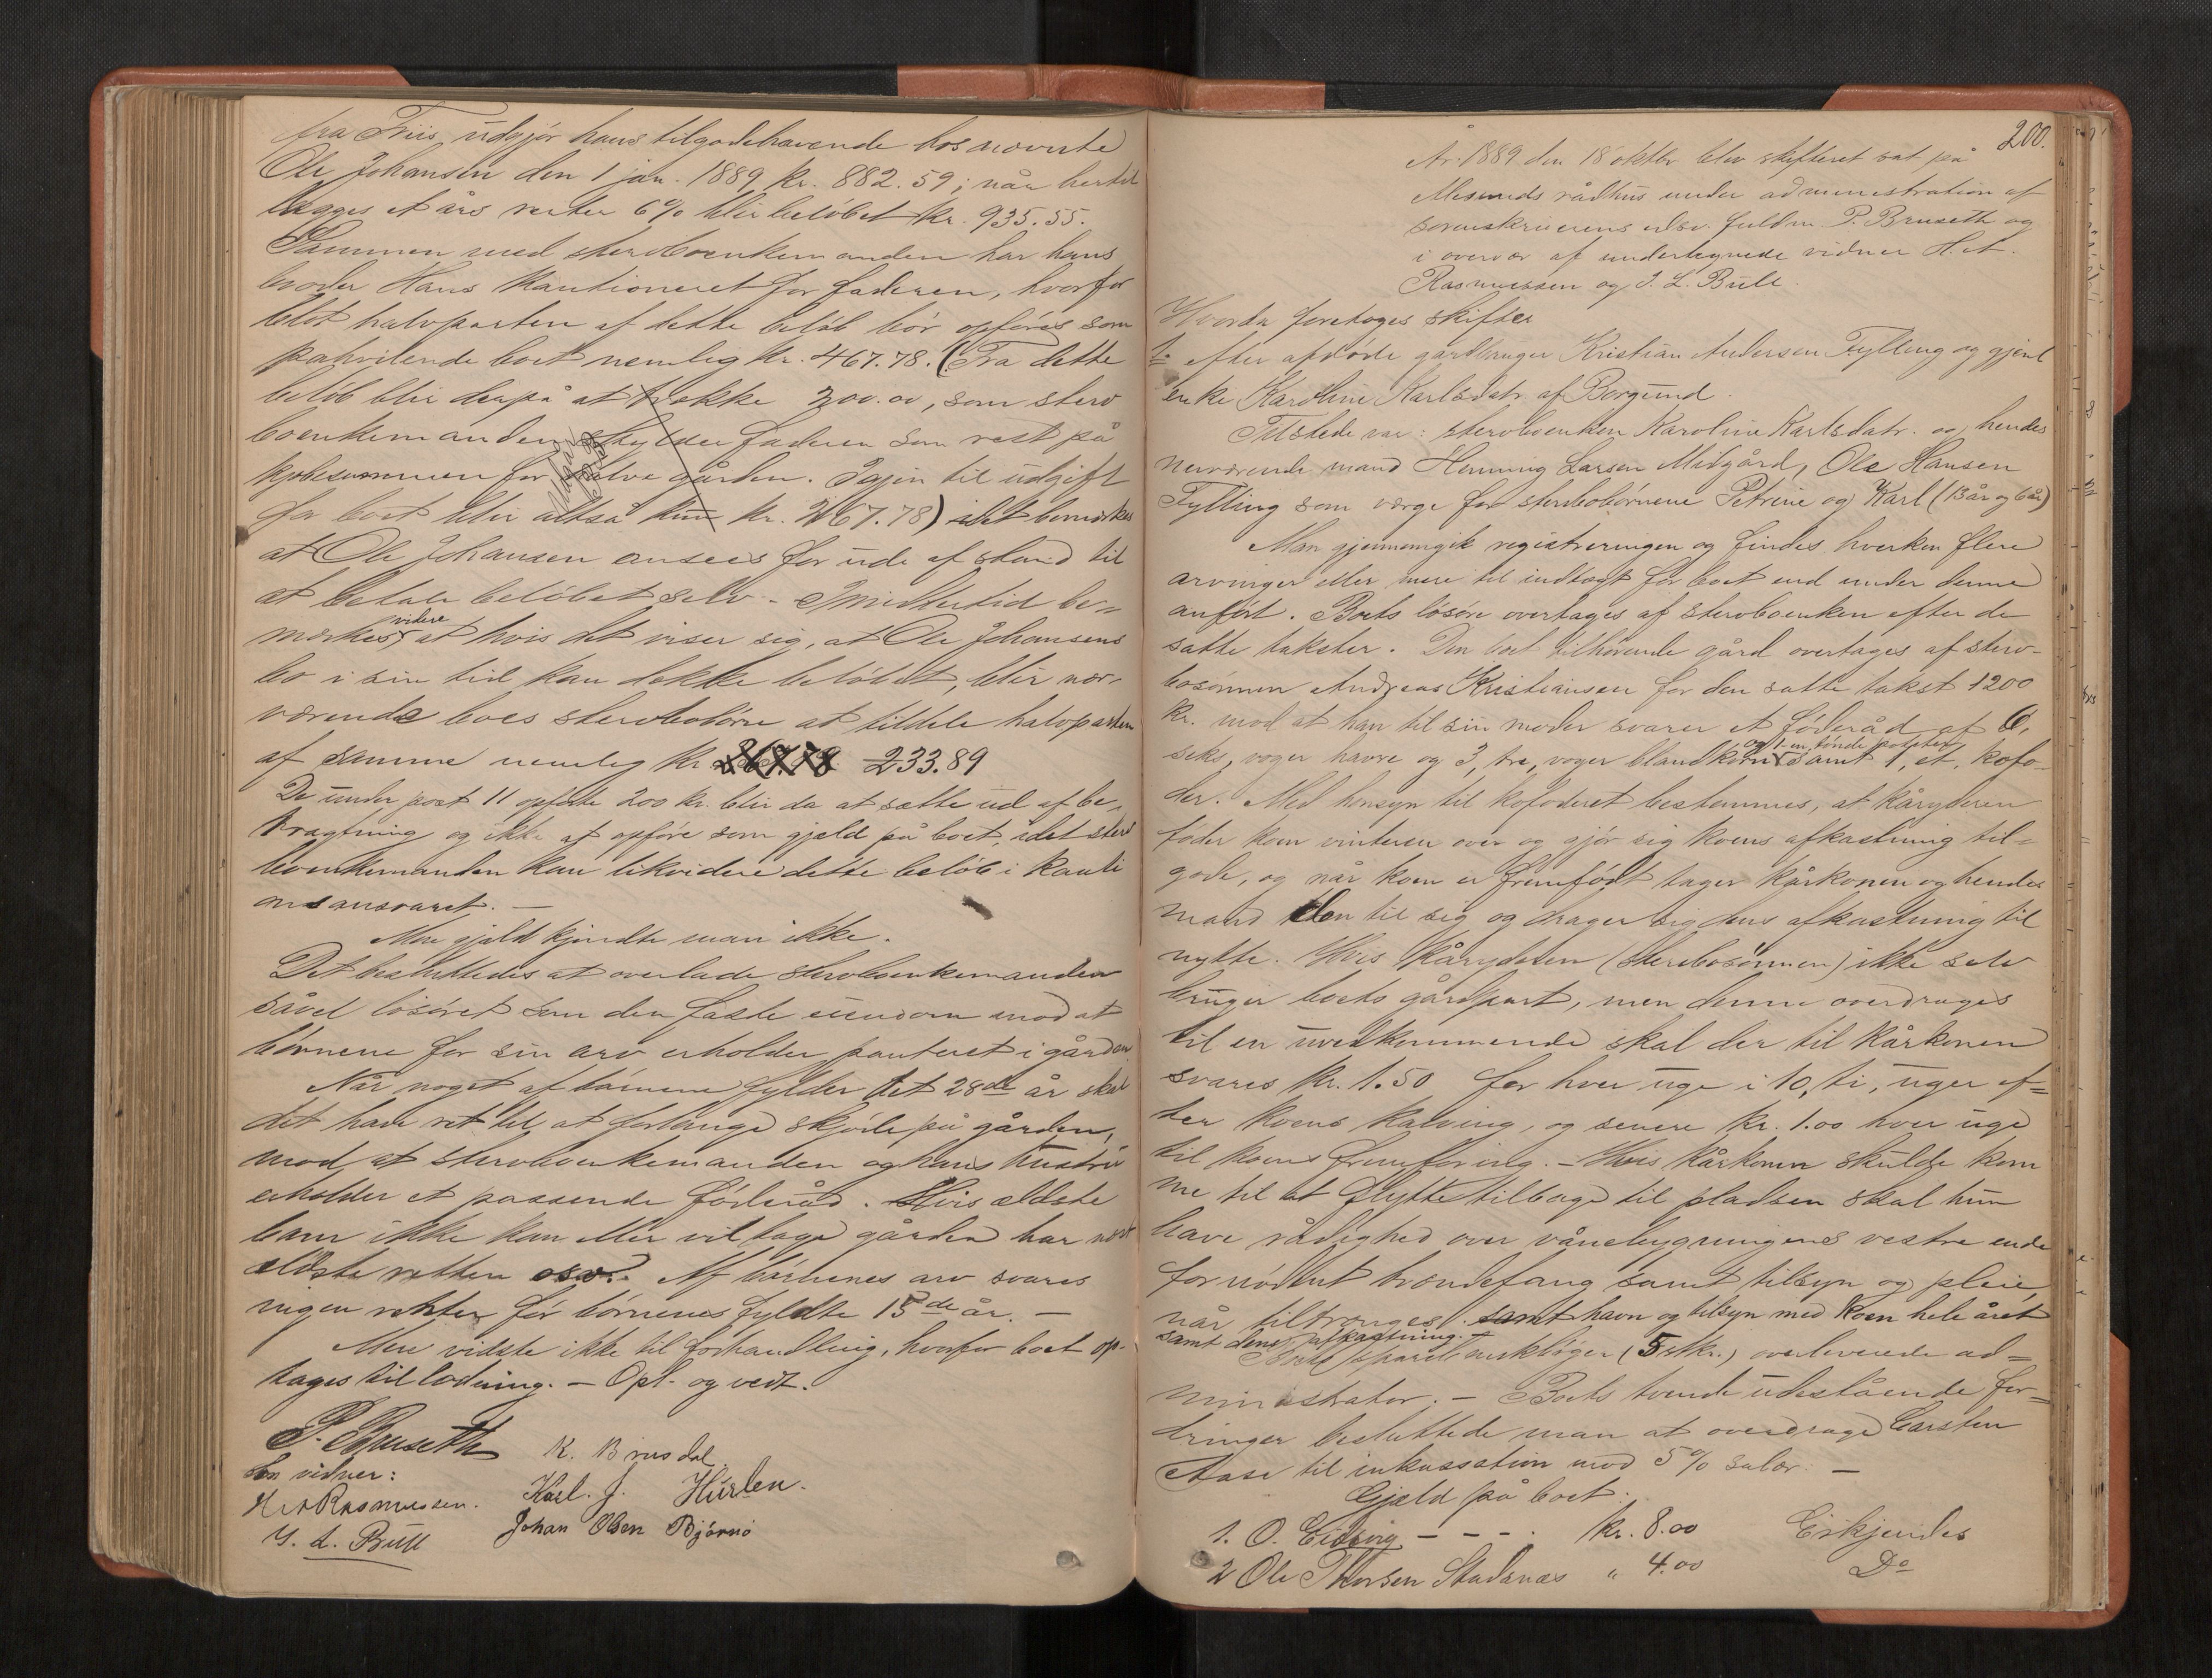 fra Friis, udgjør hans tilgodehavende hos nævnte
Ole Johansen den 1 jan. 1889 kr. 882.59; når hertil
lægges et års renter 6% blir beløbet kr. 935.55.
Sammen med sterboenkemanden har hans
broder Hans kautioneret for faderen, hvorfor
blot halvparten af dette beløb bør opføres som
påhvilende boet nemlig kr. 467.78. (Fra dette
beløb blir derpå at trække 200.00, som sterv
boenkemanden skylder faderen som rest på
kjøbesummen for halve gården. Igjen til udgift
for boet blir altså kun kr. 267.78) idet bemærkes
at Ole Johansen ansees for ude af stand til
at betale beløbet selv. – Imidlertid be=
mærkes videre at hvis det viser sig, at Ole Johansens
bo i sin tid kan dække beløbet, blir nær-
værende boes sterbobørn at tildele halvparten
af samme nemlig kr 267.78 233.89
De under post 11 opførte 200 kr. blir da at sætte ud af be-
tragtning og ikke at opføre som gjæld på boet, idet sterv
boenkemanden kan likvidere dette beløb i kauti
onsansvaret. –
Mere gjæld kjendte man ikke.
Det besluttedes at overlade sterboenkemanden
såvel løsøret som den faste eiendom mod at
børnene for sin arv erholder panteret i gården
Når noget af børnene fylder det 28de år skal
det have ret til at forlange skjøde på gården,
mod at sterboenkemanden og hans hustru
erholder et passende føderåd. Hvis ældste
barn ikke kan eller vil tage gården har næst
ældste retten osv. Af børnenes arv svares
ingen renter før børnenes fyldte 15de år. –
Mere vidste ikke til forhandling, hvorfor boet op-
tages til lodning. – Opl. og vedt.
P. Bruseth K. Brusdal
Som vidner: Karl. J. Hurlen.
H A Rasmussen. Johan Olsen Bjørnø
J. L. Bull
200.
År 1889 den 18 oktbr. blev skifteret sat på
Ålesunds rådhus under administration af
sorenskriverens edsv. fuldm. P. Bruseth og
i overvær af undertegnede vidner H. A.
Rasmussen og J. L. Bull.
Hvorda foretoges skifte
1. efter afdøde gårdbruger Kristian Andersen Fylling og gjenl
enke Karoline Karlsdatr. af Borgund.
Tilstede var: sterboenken Karoline Karlsdatr. og hendes
nuværende mand Henning Larsen Midgård, Ole Hansen
Fylling som værge for sterbobørnene Petrine og Karl (13 år og 6 år)
Man gjennemgik registreringen og findes hverken flere
arvinger eller mere til indtægt for boet end under denne
anført. Boets løsøre overtages af sterboenken efter de
satte takster. Den boet tilhørende gård overtages af sterv-
bosønnen Andreas Kristiansen for den satte takst 1200
kr. mod at han til sin moder svarer et føderåd af 6,
seks, voger havre og 3, tre, voger blandkorn og 1-en tønde poteter samt 1, et, kofo-
der. Med hensyn til kofoderet bestemmes, at kåryderen
føder koen vinteren over og gjør sig koens afkastning til=
gode, og når koen er fremfødt tager kårkonen og hendes
mand den til sig og drager sig dens afkastning til
nytte. Hvis kåryderen (sterbosønnen) ikke selv
bruger boets gårdpart, men denne overdrages
til en uvedkommende skal der til kårkonen
svares kr. 1.50 for hver uge i 10, ti, uger ef=
ter koens kalving, og senere kr. 1.00 hver uge
til koens fremforing. – Hvis kårkonen skulde kom
me til at flytte tilbage til pladsen skal hun
have rådighed over vånebygningens vestre ende
fornødent brændefang samt tilsyn og pleie,
når tiltrænges, samt havn og tilsyn med koen hele året
samt dens afkastning. –
Boets sparebankbøger (5 stkr.) overleverede ad=
ministrator. – Boets tvende udestående for=
dringer besluttede man at overdrage Carsten
Aase til inkassation mod 5% salær. –
Gjæld på boet:
1. O. Eidsvig – – – . kr. 8.00 Erkjendes
2 Ole Thorsen Stadsnæs " 4.00 Do